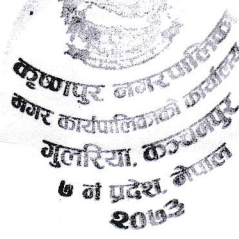 कृष्णपुर नगरपालिका
नगर कार्यपालिकाको कार्यालय
गुलरिया, कञ्चनपुर
७ नं प्रदेश, नेपाल
२०७३